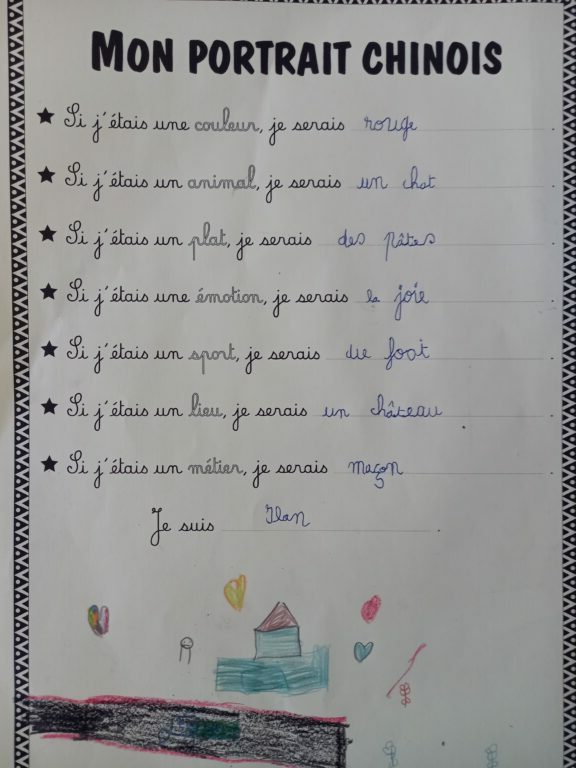 MON PORTRAIT CHINOIS
★ Si j'étais une couleur, je serais rouge.
★ Si j'étais un animal, je serais un chat.
★ Si j'étais un plat, je serais des pâtes.
★ Si j'étais une émotion, je serais la joie.
★ Si j'étais un sport, je serais du foot.
★ Si j'étais un lieu, je serais un château.
★ Si j'étais un métier, je serais maçon.
Je suis Ilan.